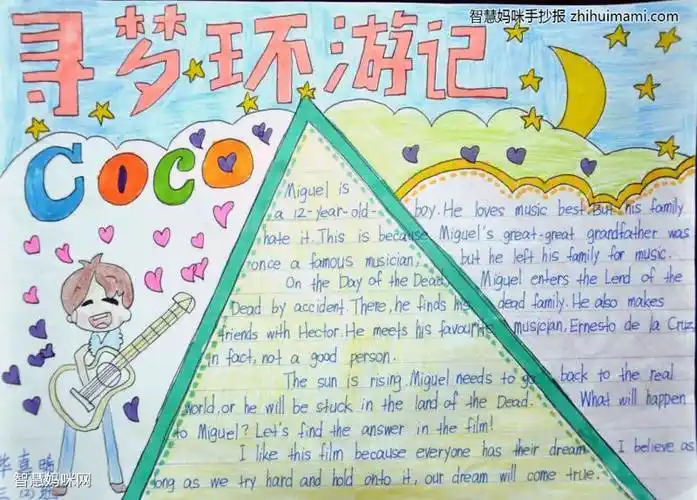 智慧妈咪手抄报 zhihuimami.com
寻梦环游记
COCO
Miguel is
a 12-year-old- boy. He loves music best. But his family
hate it. This is because Miguel's great-great grandfather was
once a famous musician, but he left his family for music.
On the Day of the Dead, Miguel enters the Lend of the
Dead by accident. There, he finds his dead family. He also makes
friends with Hector. He meets his favourite musician, Ernesto de la Cruz,
in fact, not a good person.
The sun is rising, Miguel needs to go back to the real
world, or he will be stuck in the land of the Dead. What will happen
to Miguel? Let's find the answer in the film!
I like this film because everyone has their dream. I believe as
long as we try hard and hold onto it, our dream will come true.
智慧妈咪网